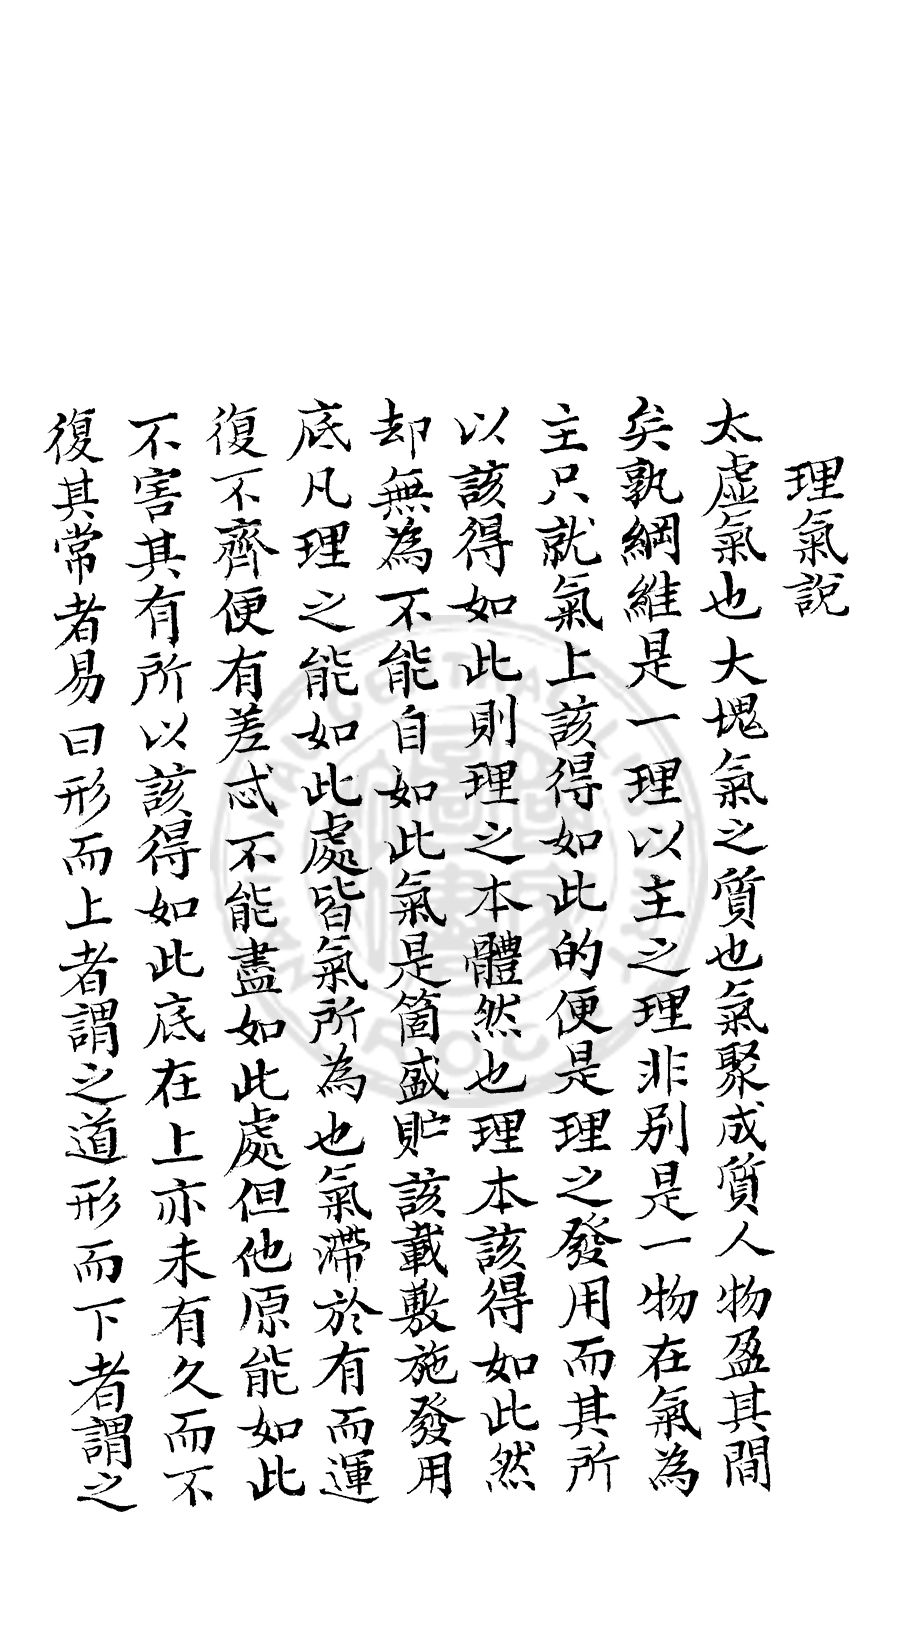 理氣說
太虛氣也大塊氣之質也氣聚成質人物盈其間
矣孰綱維是一理以主之理非別是一物在氣為
主只就氣上該得如此的便是理之發用而其所
以該得如此則理之本體然也理本該得如此然
却無為不能自如此氣是箇盛貯該載敷施發用
底凡理之能如此處皆氣所為也氣滯於有而運
復不齊便有差忒不能盡如此處但他原能如此
不害其有所以該得如此底在上亦未有久而不
復其常者易曰形而上者謂之道形而下者謂之